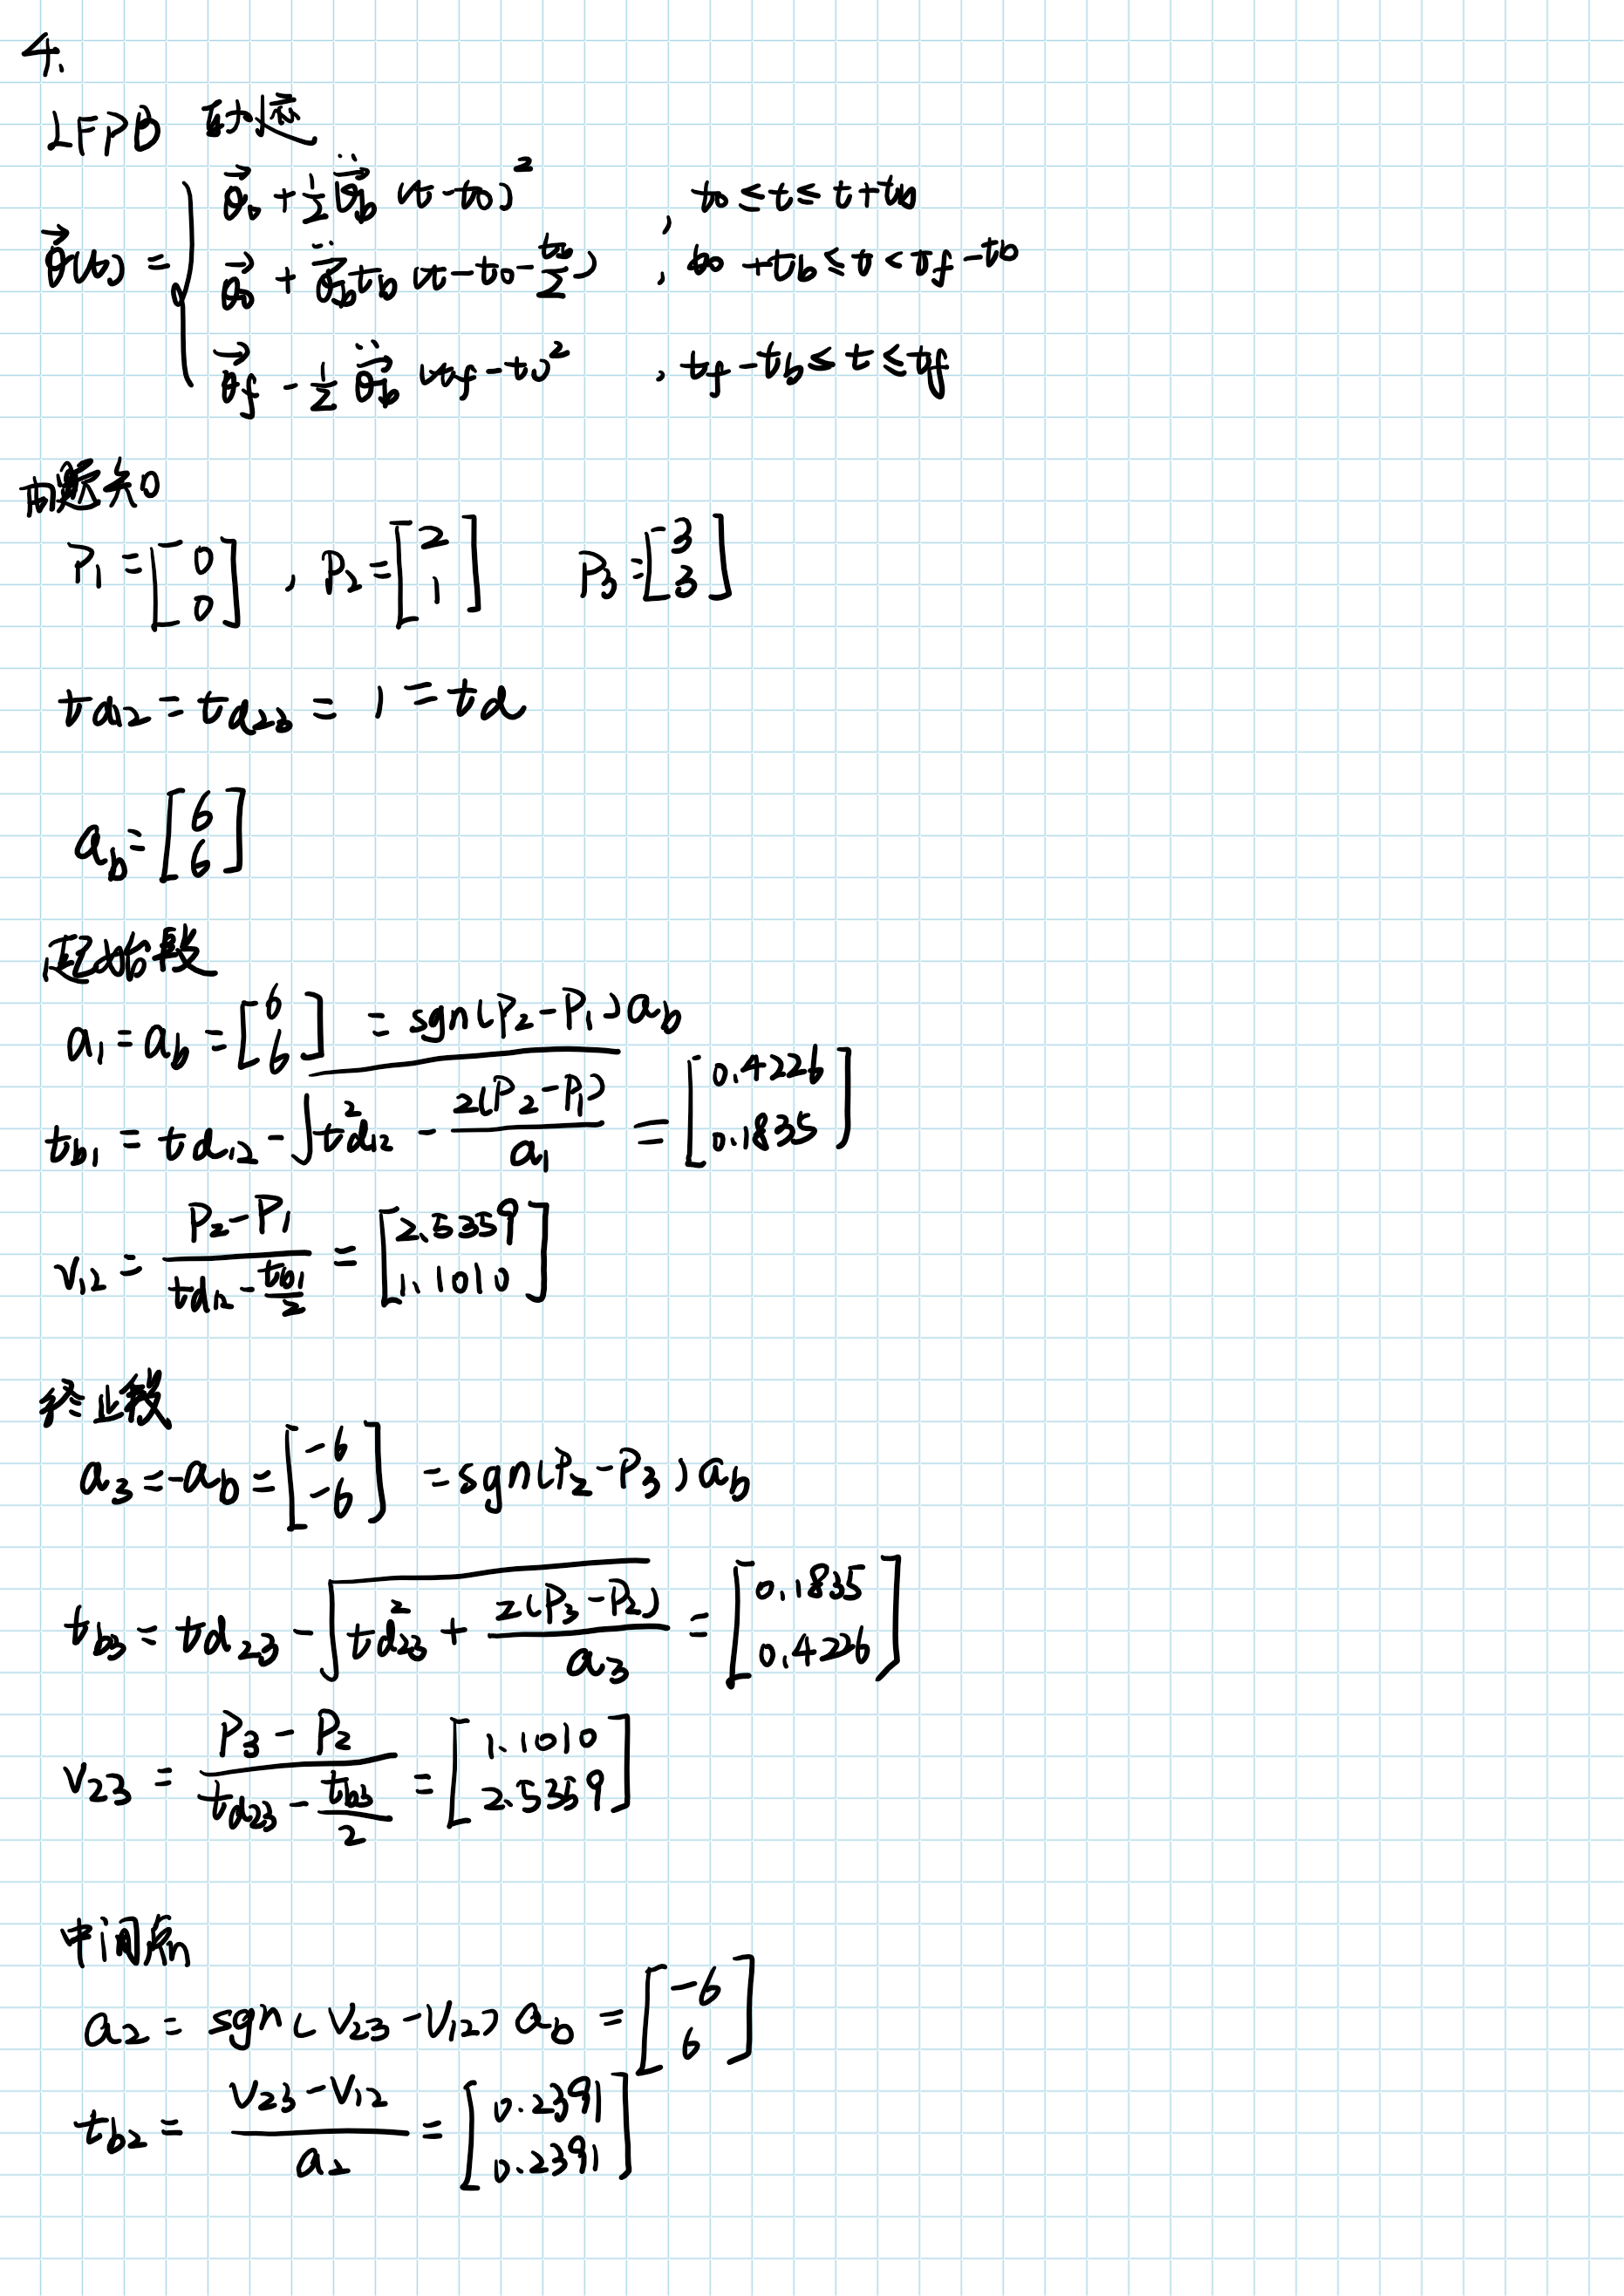 4.
LFPB 轨迹
θ⃗(t) = { θ⃗₀ + 1/2 θ̈⃗b (t-t₀)² , t₀ ≤ t ≤ t+tb
θ⃗₀ + θ̈⃗b tb (t-t₀-tb/2) , t₀+tb ≤ t < tf-tb
θ⃗f - 1/2 θ̈⃗b (tf-t)² , tf-tb ≤ t ≤ tf
由题知
P₁ = [0 0] , P₂ = [2 1] P₃ = [3 3]
td₁₂ = td₂₃ = 1 = td
ab = [6 6]
起始段
a₁ = ab = [6 6] = sgn(P₂-P₁)ab
tb₁ = td₁₂ - √(td₁₂² - 2(P₂-P₁)/a₁) = [0.4226 0.1835]
v₁₂ = (P₂-P₁)/(td₁₂ - tb₁/2) = [2.5359 1.1010]
终止段
a₃ = -ab = [-6 -6] = sgn(P₂-P₃)ab
tb₃ = td₂₃ - √(td₂₃² + 2(P₃-P₂)/a₃) = [0.1835 0.4226]
v₂₃ = (P₃-P₂)/(td₂₃ - tb₃/2) = [1.1010 2.5359]
中间点
a₂ = sgn(v₂₃-v₁₂)ab = [-6 6]
tb₂ = (v₂₃-v₁₂)/a₂ = [0.2391 0.2391]